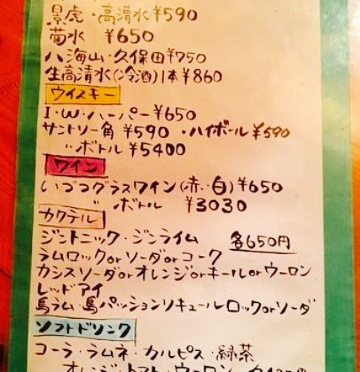 景虎・高清水¥590
菊水 ¥650
八海山・久保田¥750
生高清水(冷酒)1本¥860
ウイスキー
I・W・ハーパー¥650
サントリー角¥590・ハイボール¥590
〃ボトル¥5400
ワイン
いづつグラスワイン(赤・白)¥650
〃 ボトル ¥3030
カクテル
ジントニック・ジンライム 各650円
ラムロックorソーダorコーク
カシスソーダorオレンジorキールorウーロン
レッドアイ
島ラム 島パッションリキュールロックorソーダ
ソフトドリンク
コーラ・ラムネ・カルピス・緑茶
オレンジ・トマト・ウーロン